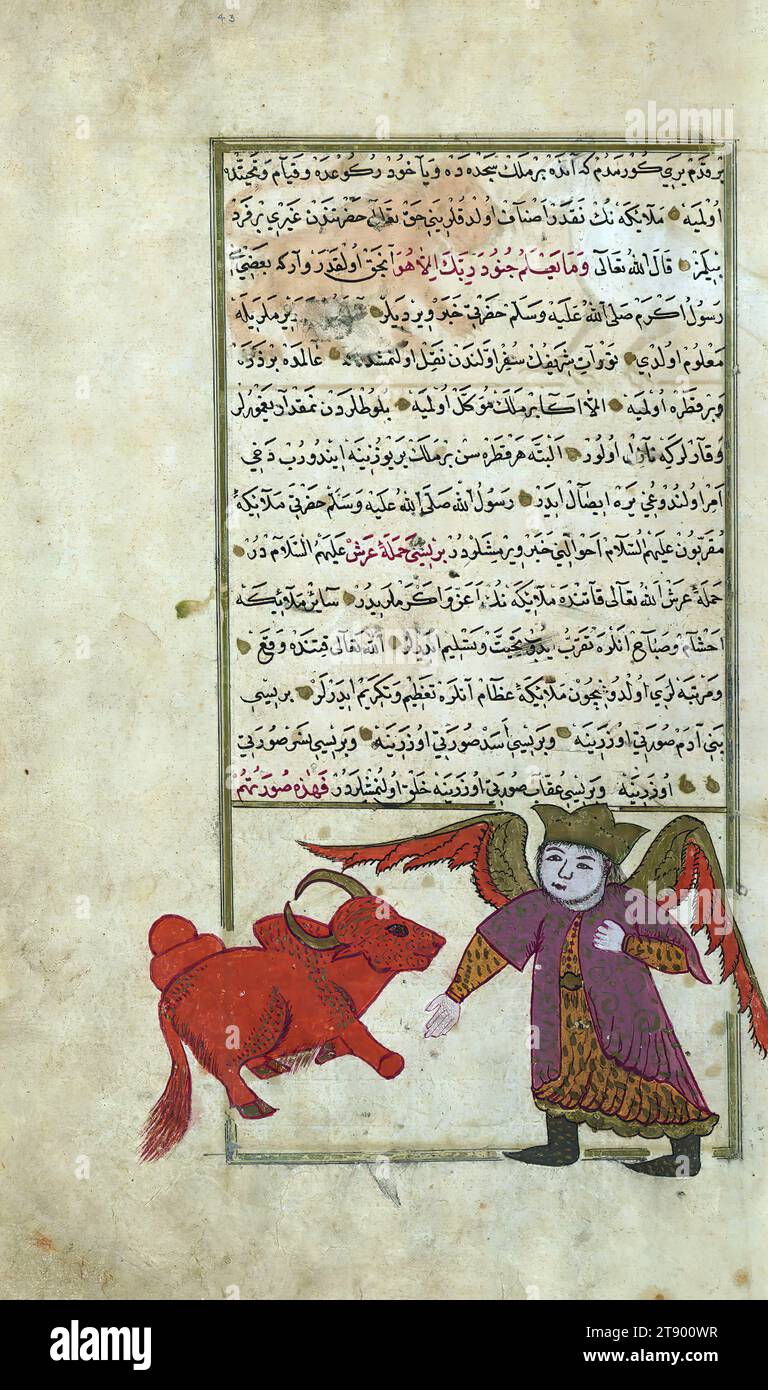 43
بر قدم يري كورمدم كه آنده بر ملك سجده ده ويا خود ركوعده وقيام وتحيتده
اولميه ملائكه نك نقدر اصناف اولدقلريني حق تعالى حضرتندن غيري بر فرد
بيلمز قال الله تعالى وما يعلم جنود ربك الا هو آنجق اولقدر وار كه بعضي
رسول اكرم صلى الله عليه وسلم حضرتي خبر ويرديلر بر ملر يله
معلوم اولدي تورات شريفك سفر اولندن نقل اولنمشدر عالمده بر ذره
وبر قطره اولميه الا اكا بر ملك موكل اولميه بلوطلردن نمقدار يغمورلر
وقارلر كه نازل اولور البته هر قطره سن بر ملك ير يوزينه ايندورب دخي
امر اولندوغي يره ايصال ايدر رسول الله صلى الله عليه وسلم حضرتي ملائكهٔ
مقربون عليهم السلام احوالني خبر ويرمشلردر بريسي حملهٔ عرش عليهم السلام در
حملهٔ عرش الله تعالى قاتنده ملائكه نك اعز واكرملريدر سائر ملائكه
اخشام وصباح انلره تقرب ايدوب تحيت وتسليم ايدرلر الله تعالى قتنده وقع
ومرتبه لري اولدوغيچون ملائكهٔ عظام آنلره تعظيم وتكريم ايدرلر بريسي
بني آدم صورتي اوزرينه وبريسي اسد صورتي اوزرينه وبريسي نسر صورتي
اوزرينه وبريسي عقاب صورتي اوزرينه خلق اولنمشلردر فهذه صورتهم
alamy
alamy
Image ID: 2T900WR
www.alamy.com